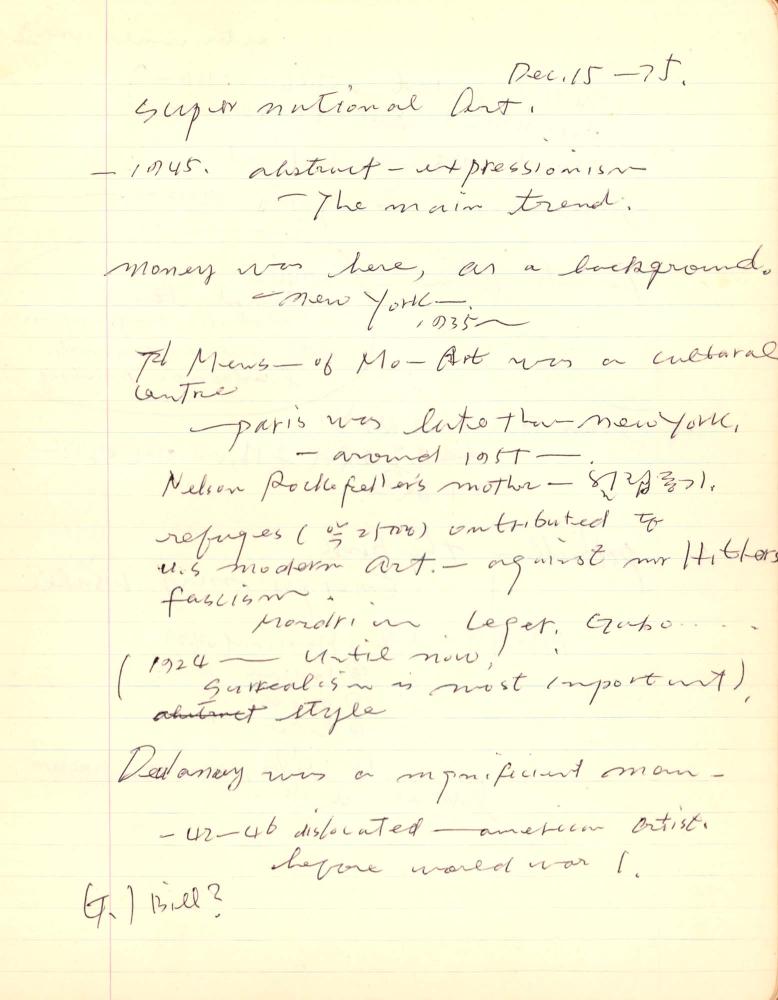 Dec. 15 - 75.
super national Art.
- 1945. abstract - expressionism
- The main trend.
money was here, as a background.
- new York -.
1935 ~
Mo- Art was a cultaral
centre
- paris was late than new York,
- around 1955 -.
Nelson Rockefeller's mother -
refuges ( ) contributed to
u.s modern Art. - against Hitlers
fascism.
Mondrian Leger, Gabo.....
( 1924 - until now,
surrealism is most important),
abstract style
Delaney was a significant man -
- 42-46 dislocated - american Artist.
before world war 1.
Bill?